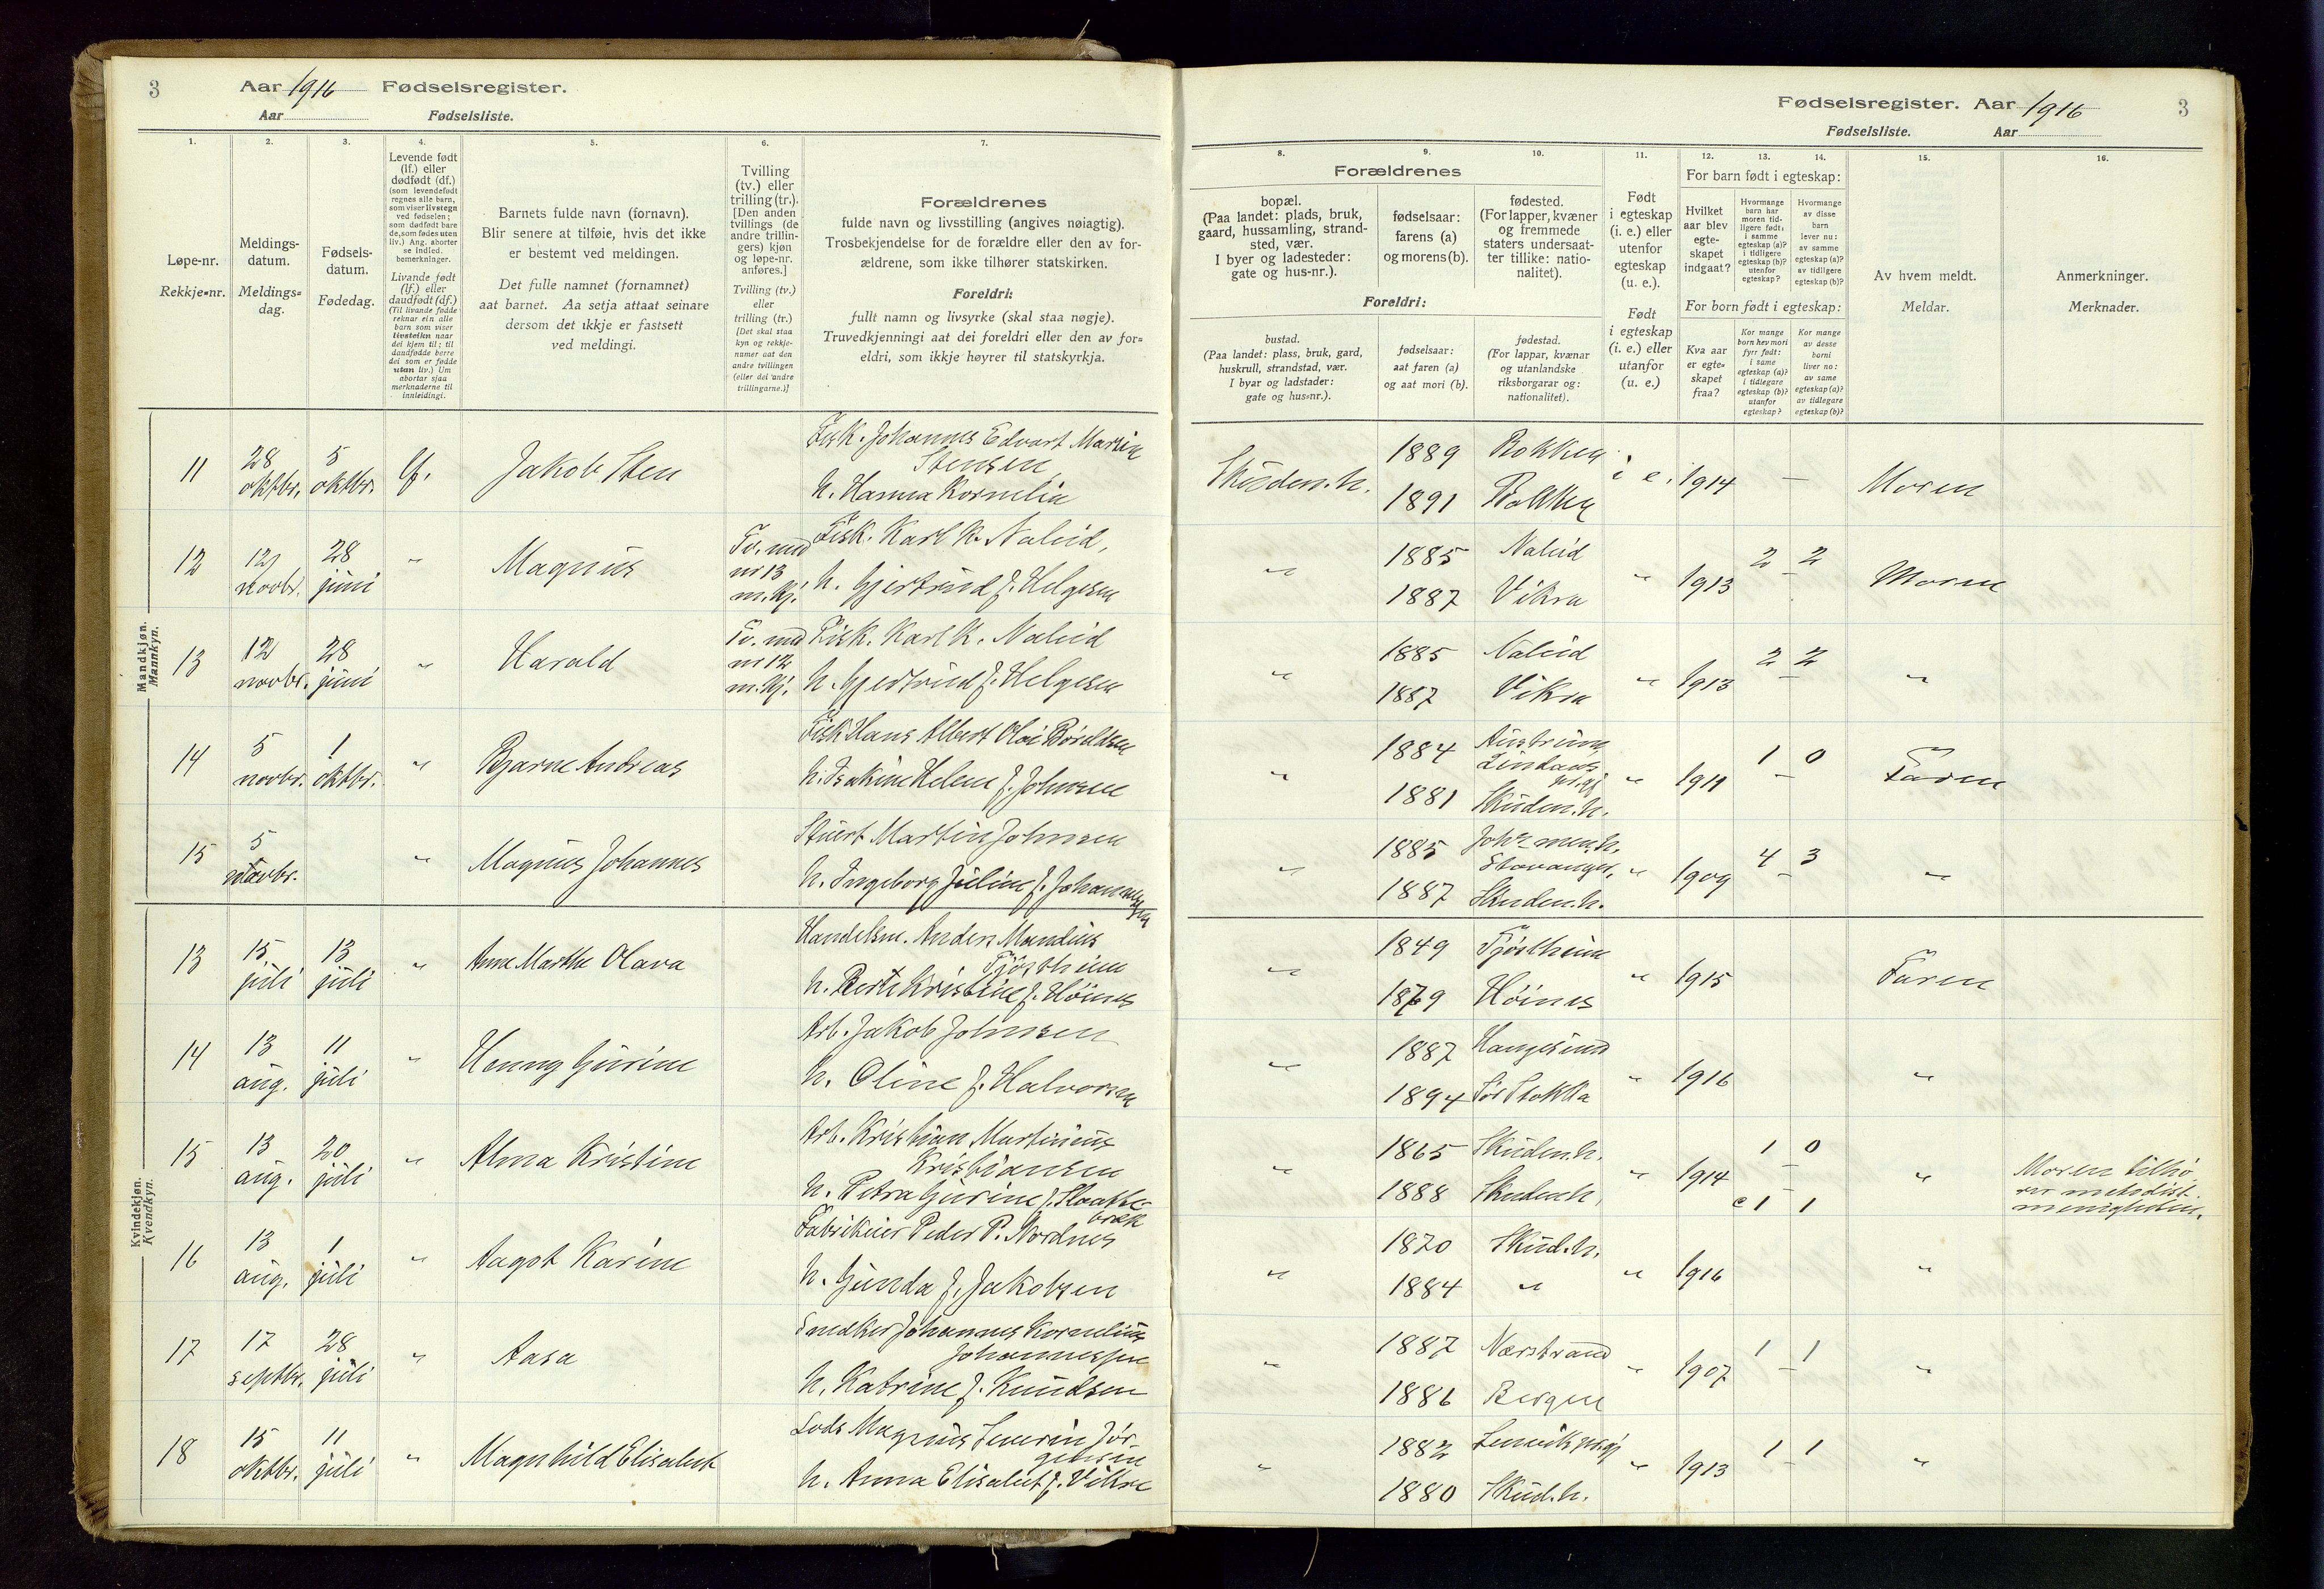 3
Aar 1916 Fødselsregister.
Aar Fødselsliste.
1.
2.
3.
4.
5.
6.
7.
Løpe-nr.
Rekkje-nr.
Meldings-
datum.
Meldings-
dag.
Fødsels-
datum.
Fødedag.
Levende født
(lf.) eller
dødfødt (df.)
(som levendefødt
regnes alle barn,
som viser livstegn
ved fødselen;
som dødfødt bare
de, som fødes uten
liv.) Ang. aborter
se indled.
bemerkninger.
Livande født
(lf.) eller
daudfødt (df.)
(Til livande fødde
reknar ein alle
barn som viser
livsteikn naar
dei kjem til; til
daudfødde berre
dei som er fødde
utan liv.) Um
abortar sjaa
merknaderne til
innleidingi.
Barnets fulde navn (fornavn).
Blir senere at tilføie, hvis det ikke
er bestemt ved meldingen.
Det fulle namnet (fornamnet)
aat barnet. Aa setja attaat seinare
dersom det ikkje er fastsett
ved meldingi.
Tvilling
(tv.) eller
trilling (tr.).
[Den anden
tvillings (de
andre trillin-
gers) kjøn
og løpe-nr.
anføres.]
Tvilling (tv.)
eller
trilling (tr.)
[Det skal staa
kyn og rekkje-
namer aat den
andre tvillingen
(eller dei andre
trillingarne.)]
Forældrenes
fulde navn og livsstilling (angives nøiagtig).
Trosbekjendelse for de forældre eller den av for-
ældrene, som ikke tilhører statskirken.
Foreldri:
fullt namn og livsyrke (skal staa nøgje).
Truvedkjenningi aat dei foreldri eller den av for-
eldri, som ikkje høyrer til statskyrkja.
Mandkjøn.
Mannkyn.
11 28 oktbr. 5 oktbr. lf. Jakob Sten
Fisk. Johannes Edvart Martin
Stensen
h. Hanna Kornelia
12 12 novbr. 28 juni " Magnus Tv. med nr 13 m.kj.
Fisk. Karl K. Nalud,
h. Gjertrud f. Helgesen
13 12 novbr. 28 juni " Harald Tv. med nr 12 m.kj.
Fisk. Karl K. Nalud
h. Gjertrud f. Helgesen
14 5 novbr. 1 oktbr. " Bjarne Andreas
Fisk Hans Albert Olai
h. Helene f. Johnsen
15 5 novbr. " Magnus Johannes
Stuert Martin Johnsen
h. Ingeborg Juline f. Johannessen
Kvindekjøn.
Kvendkyn.
13 15 juli 13 juli " Anne Marthe Olava
Handelsm. Anders Mandius
Fjøstheim
h. Berte Kristine f. Høines
14 13 aug. 11 juli " Henny Gurine
Arb. Jakob Johnsen
h. Oline f. Halvorsen
15 13 aug. 20 juli " Alma Kristine
Arb. Kristian Martinius
Kristiansen
h. Petra Gurine f. Slaatte-
bræk
16 13 aug. 1 juli " Aagot Karine
Fabrikeier Peder P. Nordnes
h. Gunda f. Jakobsen
17 17 septbr. 28 juli " Aasa
Snedker Johannes Kornelius
Johannessen
h. Katrine f. Knudsen
18 15 oktbr. 11 juli " Magnhild Elisabet
Lods Magnus Severin Jør-
gensen
h. Anna Elisabet f. Vikre
Fødselsregister. Aar 1916
3
Fødselsliste. Aar
8.
9.
10.
11.
12.
13.
14.
15.
16.
Forældrenes
bopæl.
(Paa landet: plads, bruk,
gaard, hussamling, strand-
sted, vær.
I byer og ladesteder:
gate og hus-nr.).
fødselsaar:
farens (a)
og morens (b).
fødested.
(For lapper, kvæner
og fremmede
staters undersaat-
ter tillike: natio-
nalitet).
Foreldri:
bustad.
(Paa landet: plass, bruk, gard,
huskrull, strandstad, vær.
I byar og ladstader:
gate og hus-nr.).
fødselsaar:
aat faren (a)
og aat mori (b).
fødestad.
(For lappar, kvænar
og utanlandske
riksborgarar og:
nationalitet).
Født
i egteskap
(i. e.) eller
utenfor
egteskap
(u. e.).
Født
i egteskap
(i. e.) eller
utanfor
(u. e.)
For barn født i egteskap:
Hvilket
aar blev
egte-
skapet
indgaat?
Hvormange
barn har
moren tid-
ligere født:
i samme
egteskap (a)?
i tidligere
egteskap (b)?
utenfor
egteskap?
Hvormange
av disse
barn
lever nu:
av samme
egteskap (a)?
av tidligere
egteskap (b)?
For born født i egteskap:
Kva aar
er egte-
skapet
fraa?
Kor mange
born hev mori
fyrr født:
i same
egteskap (a)?
i tidlegare
egteskap (b)?
utanfor
egteskap?
Kor mange
av desse
borni
liver no:
av same
egteskap (a)?
av tidlegare
egteskap (b)?
Av hvem meldt.
Meldar.
Anmerkninger.
Merknader.
Skuden.h. 1889 Bokken i e. 1914 — Moren
1891 Bokken
" 1885 Nalud " 1913 2 – 2 Moren
1887 Vikra
" 1885 Nalud " 1913 2 – 2 "
1887 Vikra
" 1884 Austrum Lindaas prgj " 1911 1 – 0 Faren
1881 Skuden.h.
" 1885 Joh's men.h. Stavanger, " 1909 4 – 3 "
1887 Skuden.h.
" 1849 Fjøstheim " 1915 Faren
1879 Høines
" 1887 Haugesund " 1916 "
1894 Sør Stokka
" 1865 Skuden.h. " 1914 1 – 0 "
1888 Skuden.h. c 1 – 1
Moren tilhø-
rer metodist-
menigheten.
" 1870 Skud.h. " 1916 "
1884 "
" 1887 Nærstrand " 1907 1 – 1 "
1886 Bergen
" 1882 prgj " 1913 1 – 1 "
1880 Skud.h.